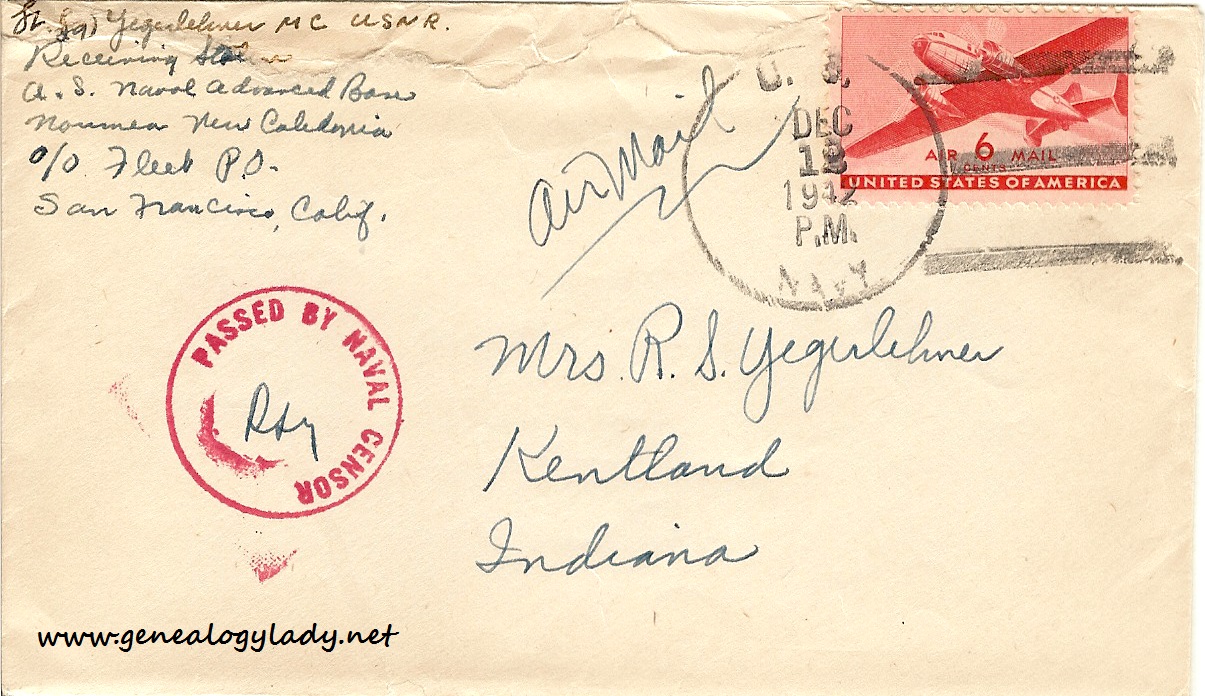 Lt. (jg) Yegerlehner MC USNR.
Receiving
U. S. Naval Advanced Base
Noumea New Caledonia
c/o Fleet P.O.
San Francisco, Calif.
Air Mail
U. S.
DEC
1942
P.M.
NAVY
AIR 6 MAIL
CENTS
UNITED STATES OF AMERICA
PASSED BY NAVAL CENSOR
Mrs. R. S. Yegerlehner
Kentland
Indiana
www.genealogylady.net